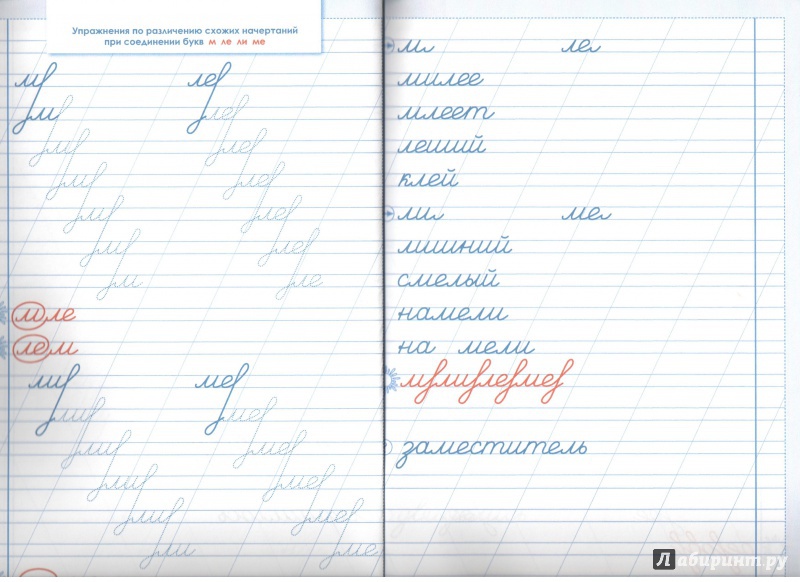 Упражнения по различению схожих начертаний
при соединении букв м ле ли ме
м ле
м ле
м ле
м ле
м ле
м ле
м ле
мле
лем
ли ме
ли ме
ли ме
ли ме
ли ме
ли ме
м ле
милее
млеет
леший
клей
ли ме
лишний
смелый
намели
на мели
млилеме
заместитель
© Лабиринт.ру